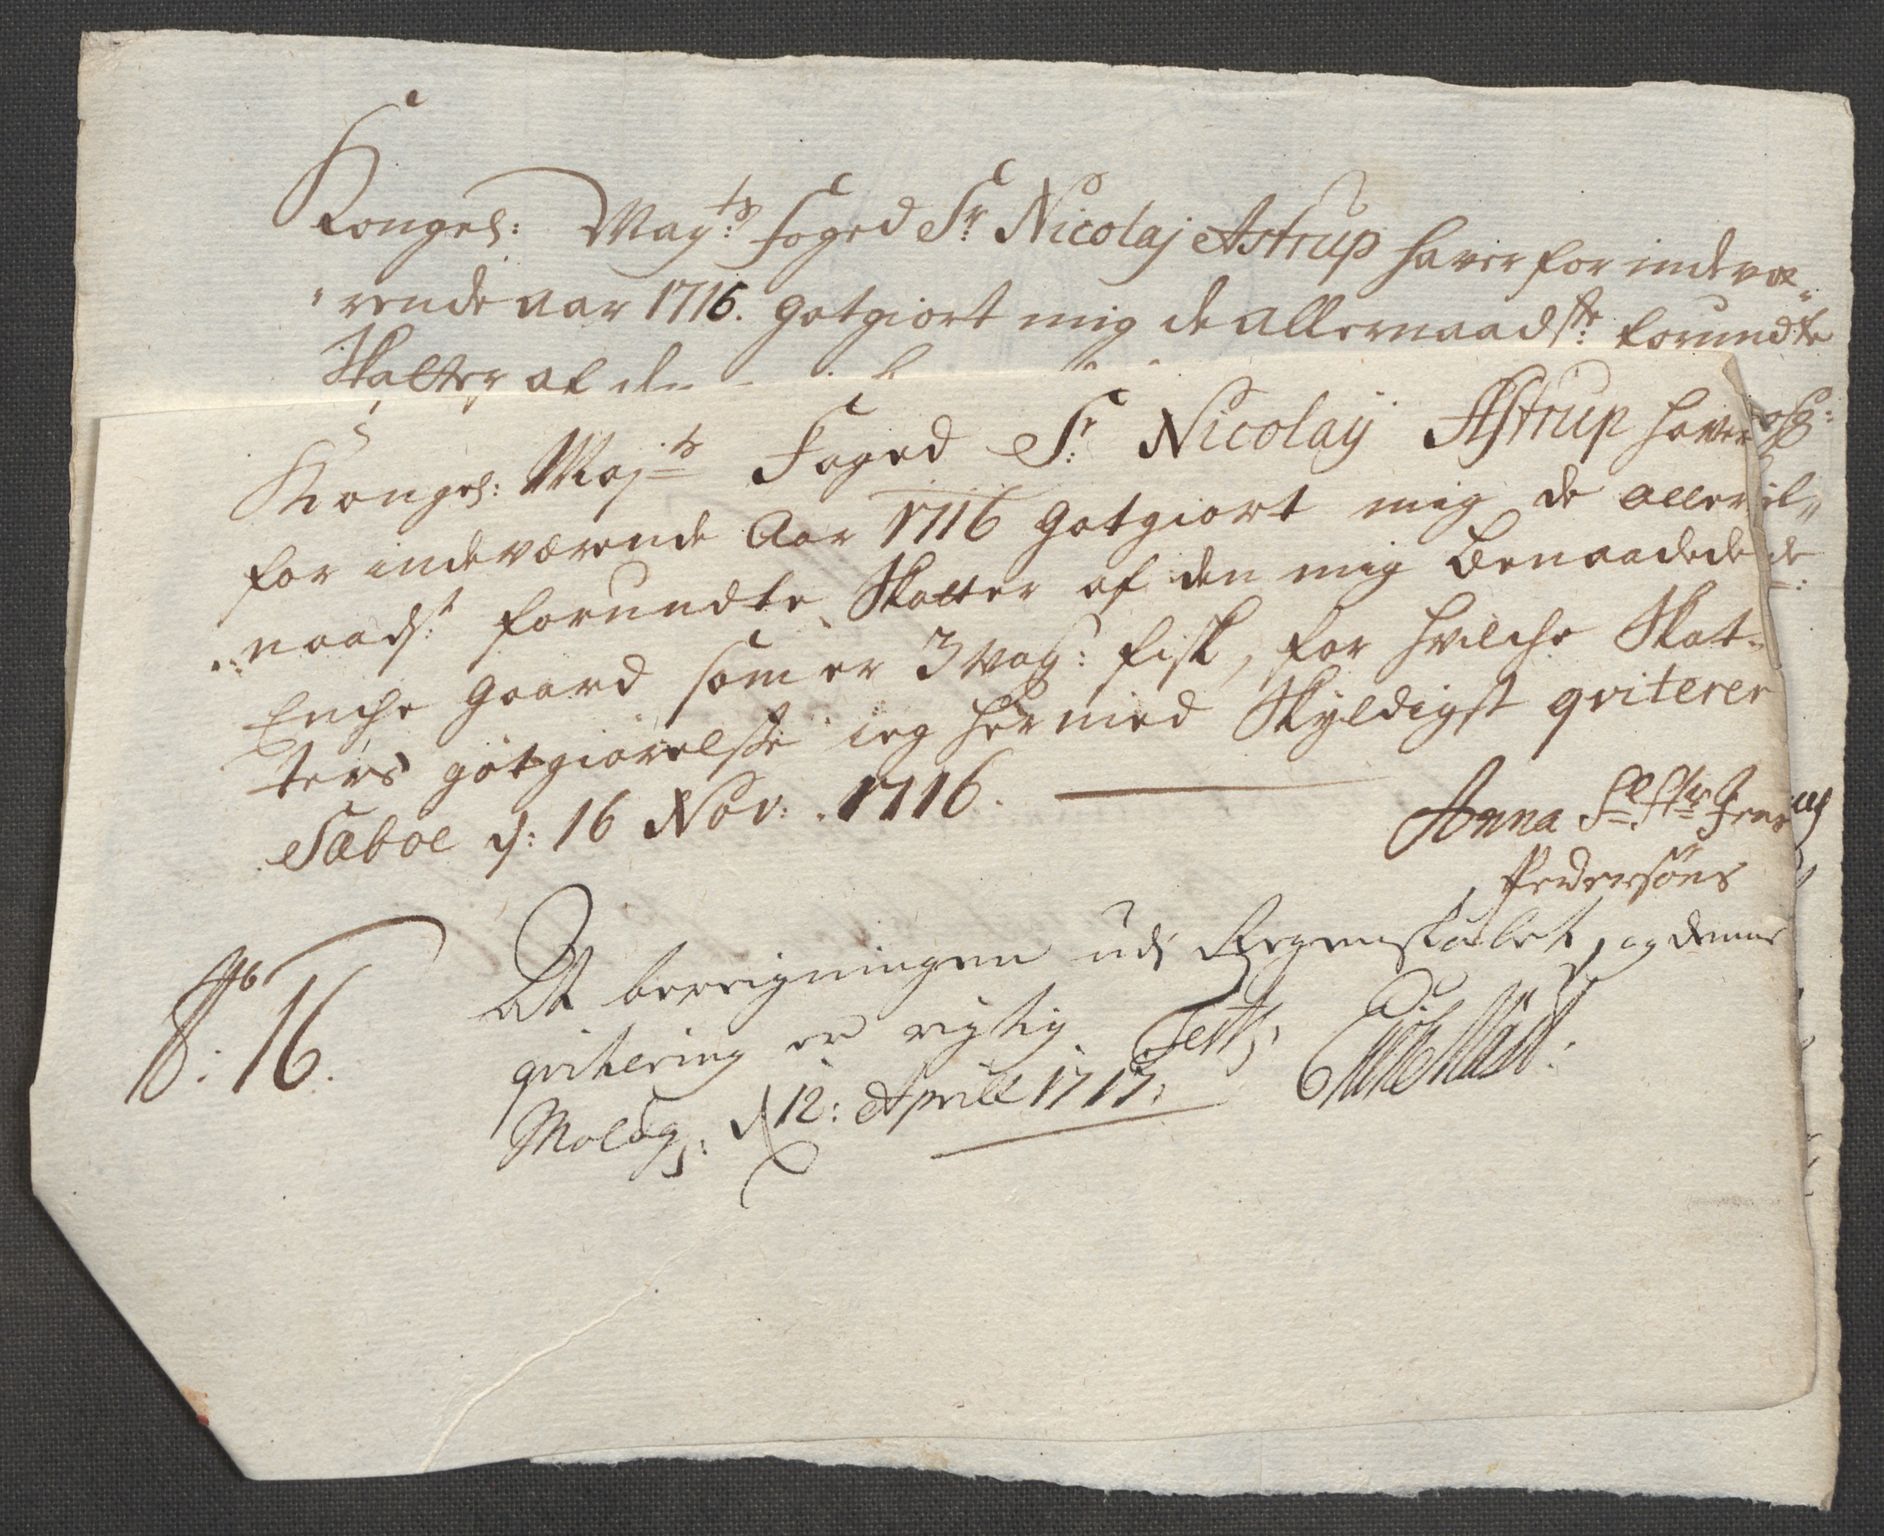 Kongel: May:ts Foged Sr Nicolaj Astrup haver for indevæ-
rende aar 1716. gotgiort mig de allernaadste: forundte
Skatter af den
Kongel: Maj:ts Foged Sr: Nicolaÿ Astrup haver
for indeværende Aar 1716 gotgiort mig de aller
naads:t forundte Skatter af den mig benaadede
Enche Gaard som er 3 vog: fisk, for hvilche Skat-
ters gotgiørelsse ieg hermed Skyldigst qviterer
Sæboe d: 16 Nov: 1716.
Anna Sl. Hr Jens
Pedersøns
At bereigningen udj Regenskabet, og denne
qvitering er rigtig Test;
Moldg: d 12: Aprill 1717:
No 16.